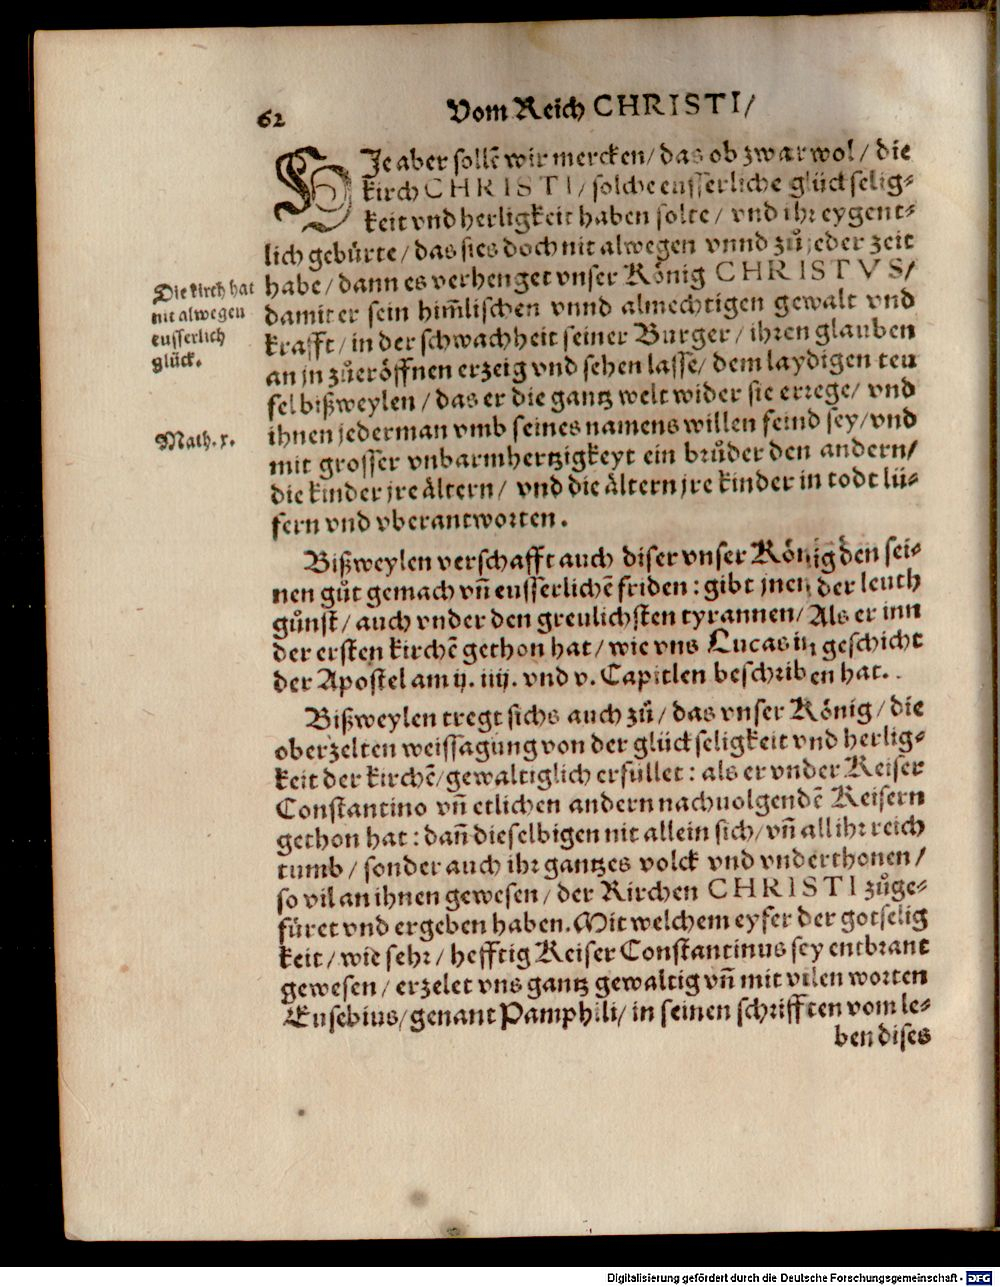 62
Vom Reich CHRISTI/
HJe aber sollē wir mercken/ das ob zwar wol/ die
kirch CHRISTI/ solche eusserliche glückselig-
keit vnd herligkeit haben solte/ vnd ihr eygent-
lich gebürte/ das sies doch nit alwegen vnnd zů jeder zeit
habe/ dann es verhenget vnser König CHRISTVS/
damit er sein him̃lischen vnnd almechtigen gewalt vnd
krafft/ in der schwachheit seiner Burger/ ihren glauben
an jn zůeröffnen erzeig vnd sehen lasse/ dem laydigen teu
fel bißweylen/ das er die gantz welt wider sie errege/ vnd
ihnen jederman vmb seines namens willen feind sey/ vnd
mit grosser vnbarmhertzigkeyt ein brůder den andern/
die kinder jre ältern/ vnd die ältern jre kinder in todt lü-
fern vnd vberantworten.
Die kirch hat
nit alwegen
eusserlich
glück.
Math. x.
Bißweylen verschafft auch diser vnser König den sei-
nen gůt gemach vñ eusserlichē friden: gibt jnen der leuth
gůnst/ auch vnder den greulichsten tyrannen/ Als er inn
der ersten kirchē gethon hat/ wie vns Lucas in geschicht
der Apostel am ij. iiij. vnd v. Capitlen beschriben hat.
Bißweylen tregt sichs auch zů/ das vnser König/ die
oberzelten weissagung von der glückseligkeit vnd herlig-
keit der kirchē/ gewaltiglich erfüllet: als er vnder Keiser
Constantino vñ etlichen andern nachuolgendē Keisern
gethon hat: dañ dieselbigen nit allein sich/ vñ all ihr reich
tumb/ sonder auch ihr gantzes volck vnd vnderthonen/
so vil an ihnen gewesen/ der Kirchen CHRISTI zůge-
füret vnd ergeben haben. Mit welchem eyfer der gotselig
keit/ wie sehr/ hefftig Keiser Constantinus sey entbrant
gewesen/ erzelet vns gantz gewaltig vñ mit vilen worten
Eusebius/ genant Pamphili/ in seinen schrifften vom le-
ben dises
Digitalisierung gefördert durch die Deutsche Forschungsgemeinschaft - DFG